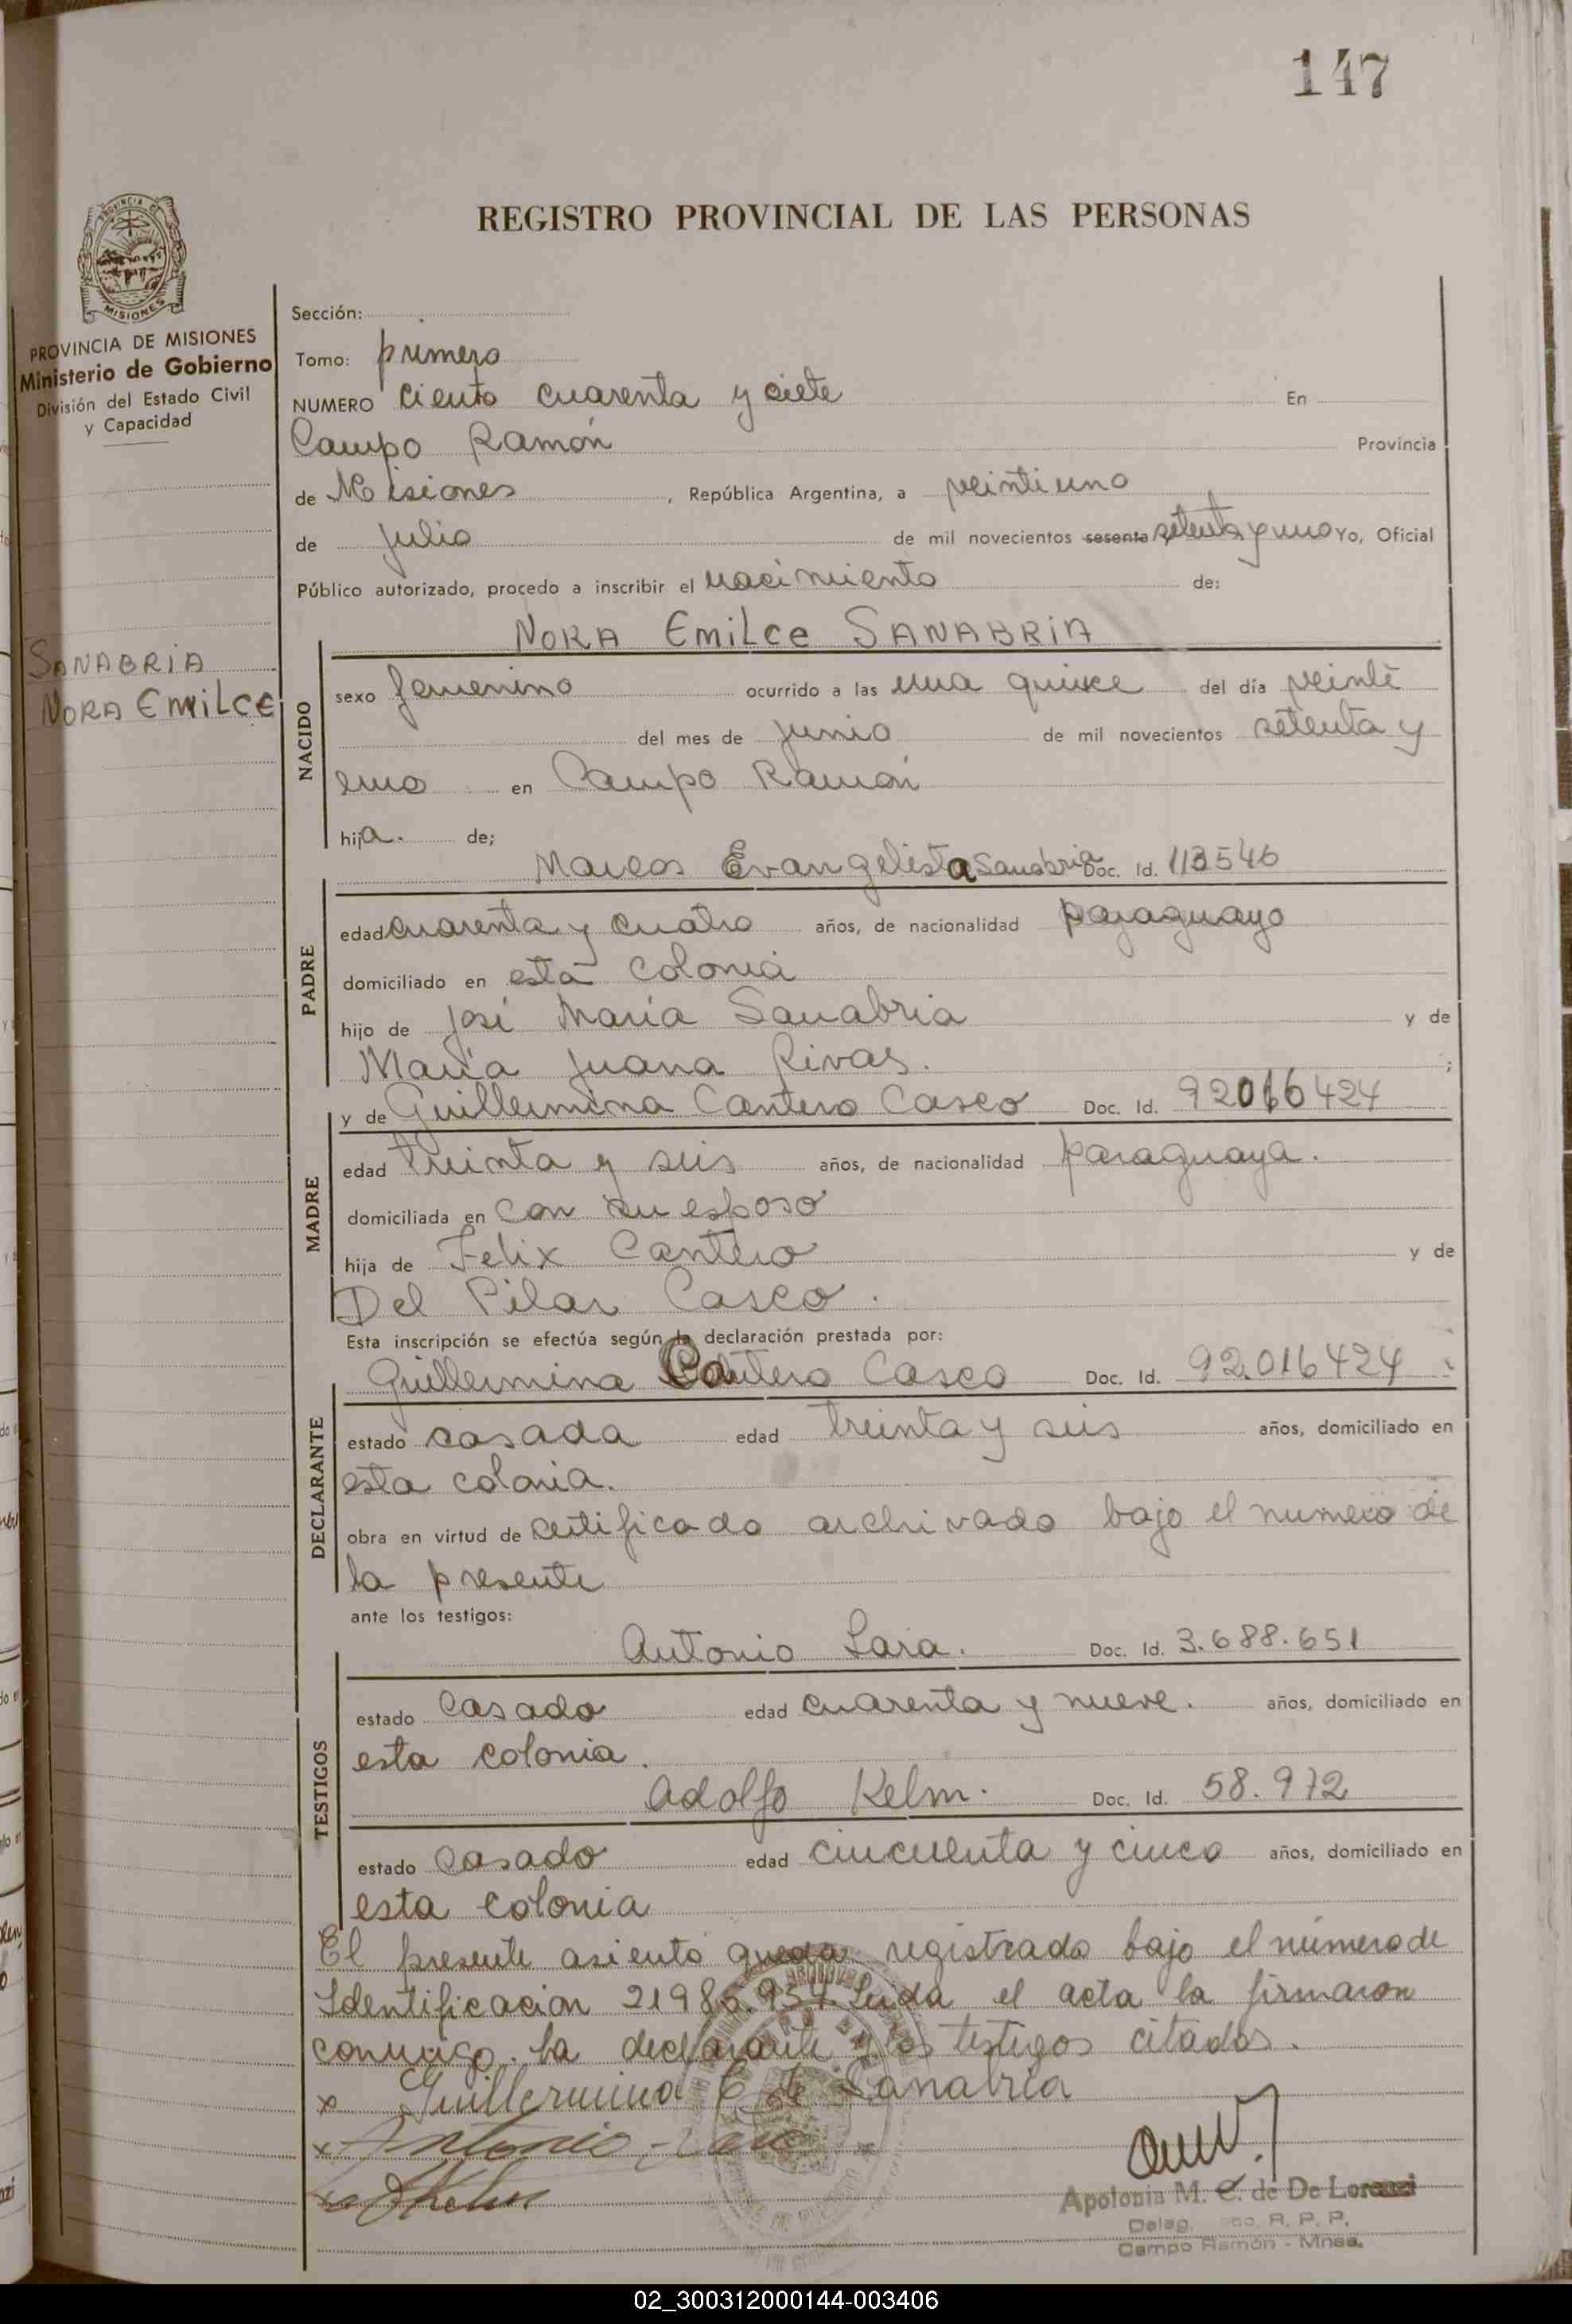 147
PROVINCIA DE
MISIONES
REGISTRO PROVINCIAL DE LAS PERSONAS
PROVINCIA DE MISIONES
Ministerio de Gobierno
División del Estado Civil
y Capacidad
SANABRIA
NORA EMILCE
Sección:
Tomo: primero
NUMERO ciento cuarenta y siete En
Campo Ramón Provincia
de Misiones, República Argentina, a veintiuno
de julio de mil novecientos sesenta setenta y uno Yo, Oficial
Público autorizado, procedo a inscribir el nacimiento de:
NORA EMILCE SANABRIA
NACIDO
sexo femenino ocurrido a las una quince del día veinte
del mes de junio de mil novecientos setenta y
uno en Campo Ramón
hija. de;
Marcos Evangelista Sanabria Doc. Id. 113546
PADRE
edad cuarenta y cuatro años, de nacionalidad paraguayo
domiciliado en esta colonia
hijo de José María Sanabria y de
María Juana Rivas. ;
y de Guillermina Cantero Casco Doc. Id. 92016424
MADRE
edad treinta y seis años, de nacionalidad paraguaya.
domiciliada en con su esposo
hija de Felix Cantero y de
Del Pilar Casco.
Esta inscripción se efectúa según la declaración prestada por:
Guillermina Cantero Casco Doc. Id. 92.016424
DECLARANTE
estado casada edad treinta y seis años, domiciliado en
esta colonia.
obra en virtud de certificado archivado bajo el numero de
la presente
ante los testigos:
Antonio Lara. Doc. Id. 3.688.651
TESTIGOS
estado casado edad cuarenta y nueve. años, domiciliado en
esta colonia.
Adolfo Kelm. Doc. Id. 58.972
estado casado edad cincuenta y cinco años, domiciliado en
esta colonia
El presente asiento queda registrado bajo el número de
Identificacion 21985.954 Leida el acta la firmaron
conmigo. la declarante y los testigos citados.
x Guillermina C de Sanabria
x Antonio Lara x
x A Kelm
Apolonia M. C. de De Lorenzi
Deleg. R. P. P.
Campo Ramón - Mnes.
02_300312000144-003406